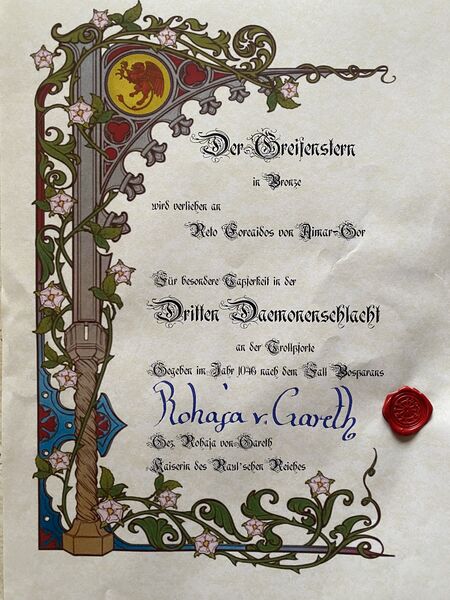 Der Greifenstern
in Bronze
wird verliehen an
Reto Eorcaidos von Aimar-Gor
Für besondere Tapferkeit in der
Dritten Daemonenschlacht
an der Trollpforte
Gegeben im Jahr 1046 nach dem Fall Bosparans
Rohaja v. Gareth
Gez. Rohaja von Gareth
Kaiserin des Raul'schen Reiches